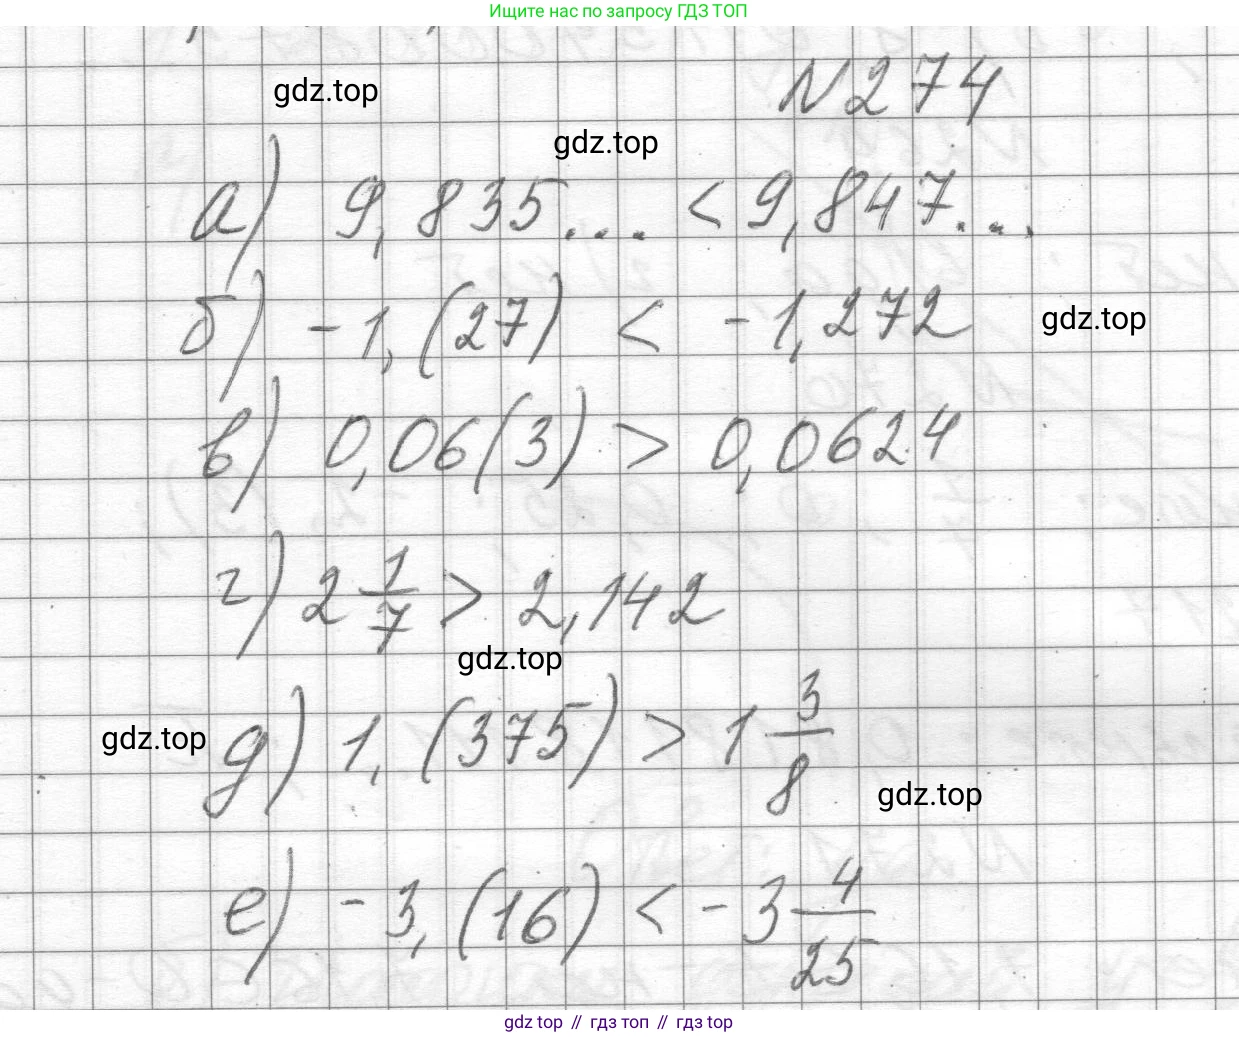 Ищите нас по запросу ГДЗ ТОП
N274
gdz.top
gdz.top
а) 9,835... < 9,847...
б) -1,(27) < -1,272
gdz.top
в) 0,06(3) > 0,0624
г) 2 1/7 > 2,142
gdz.top
gdz.top
д) 1,(375) > 1 3/8
gdz.top
е) -3,(16) < -3 4/25
gdz top // гдз топ // гдз top